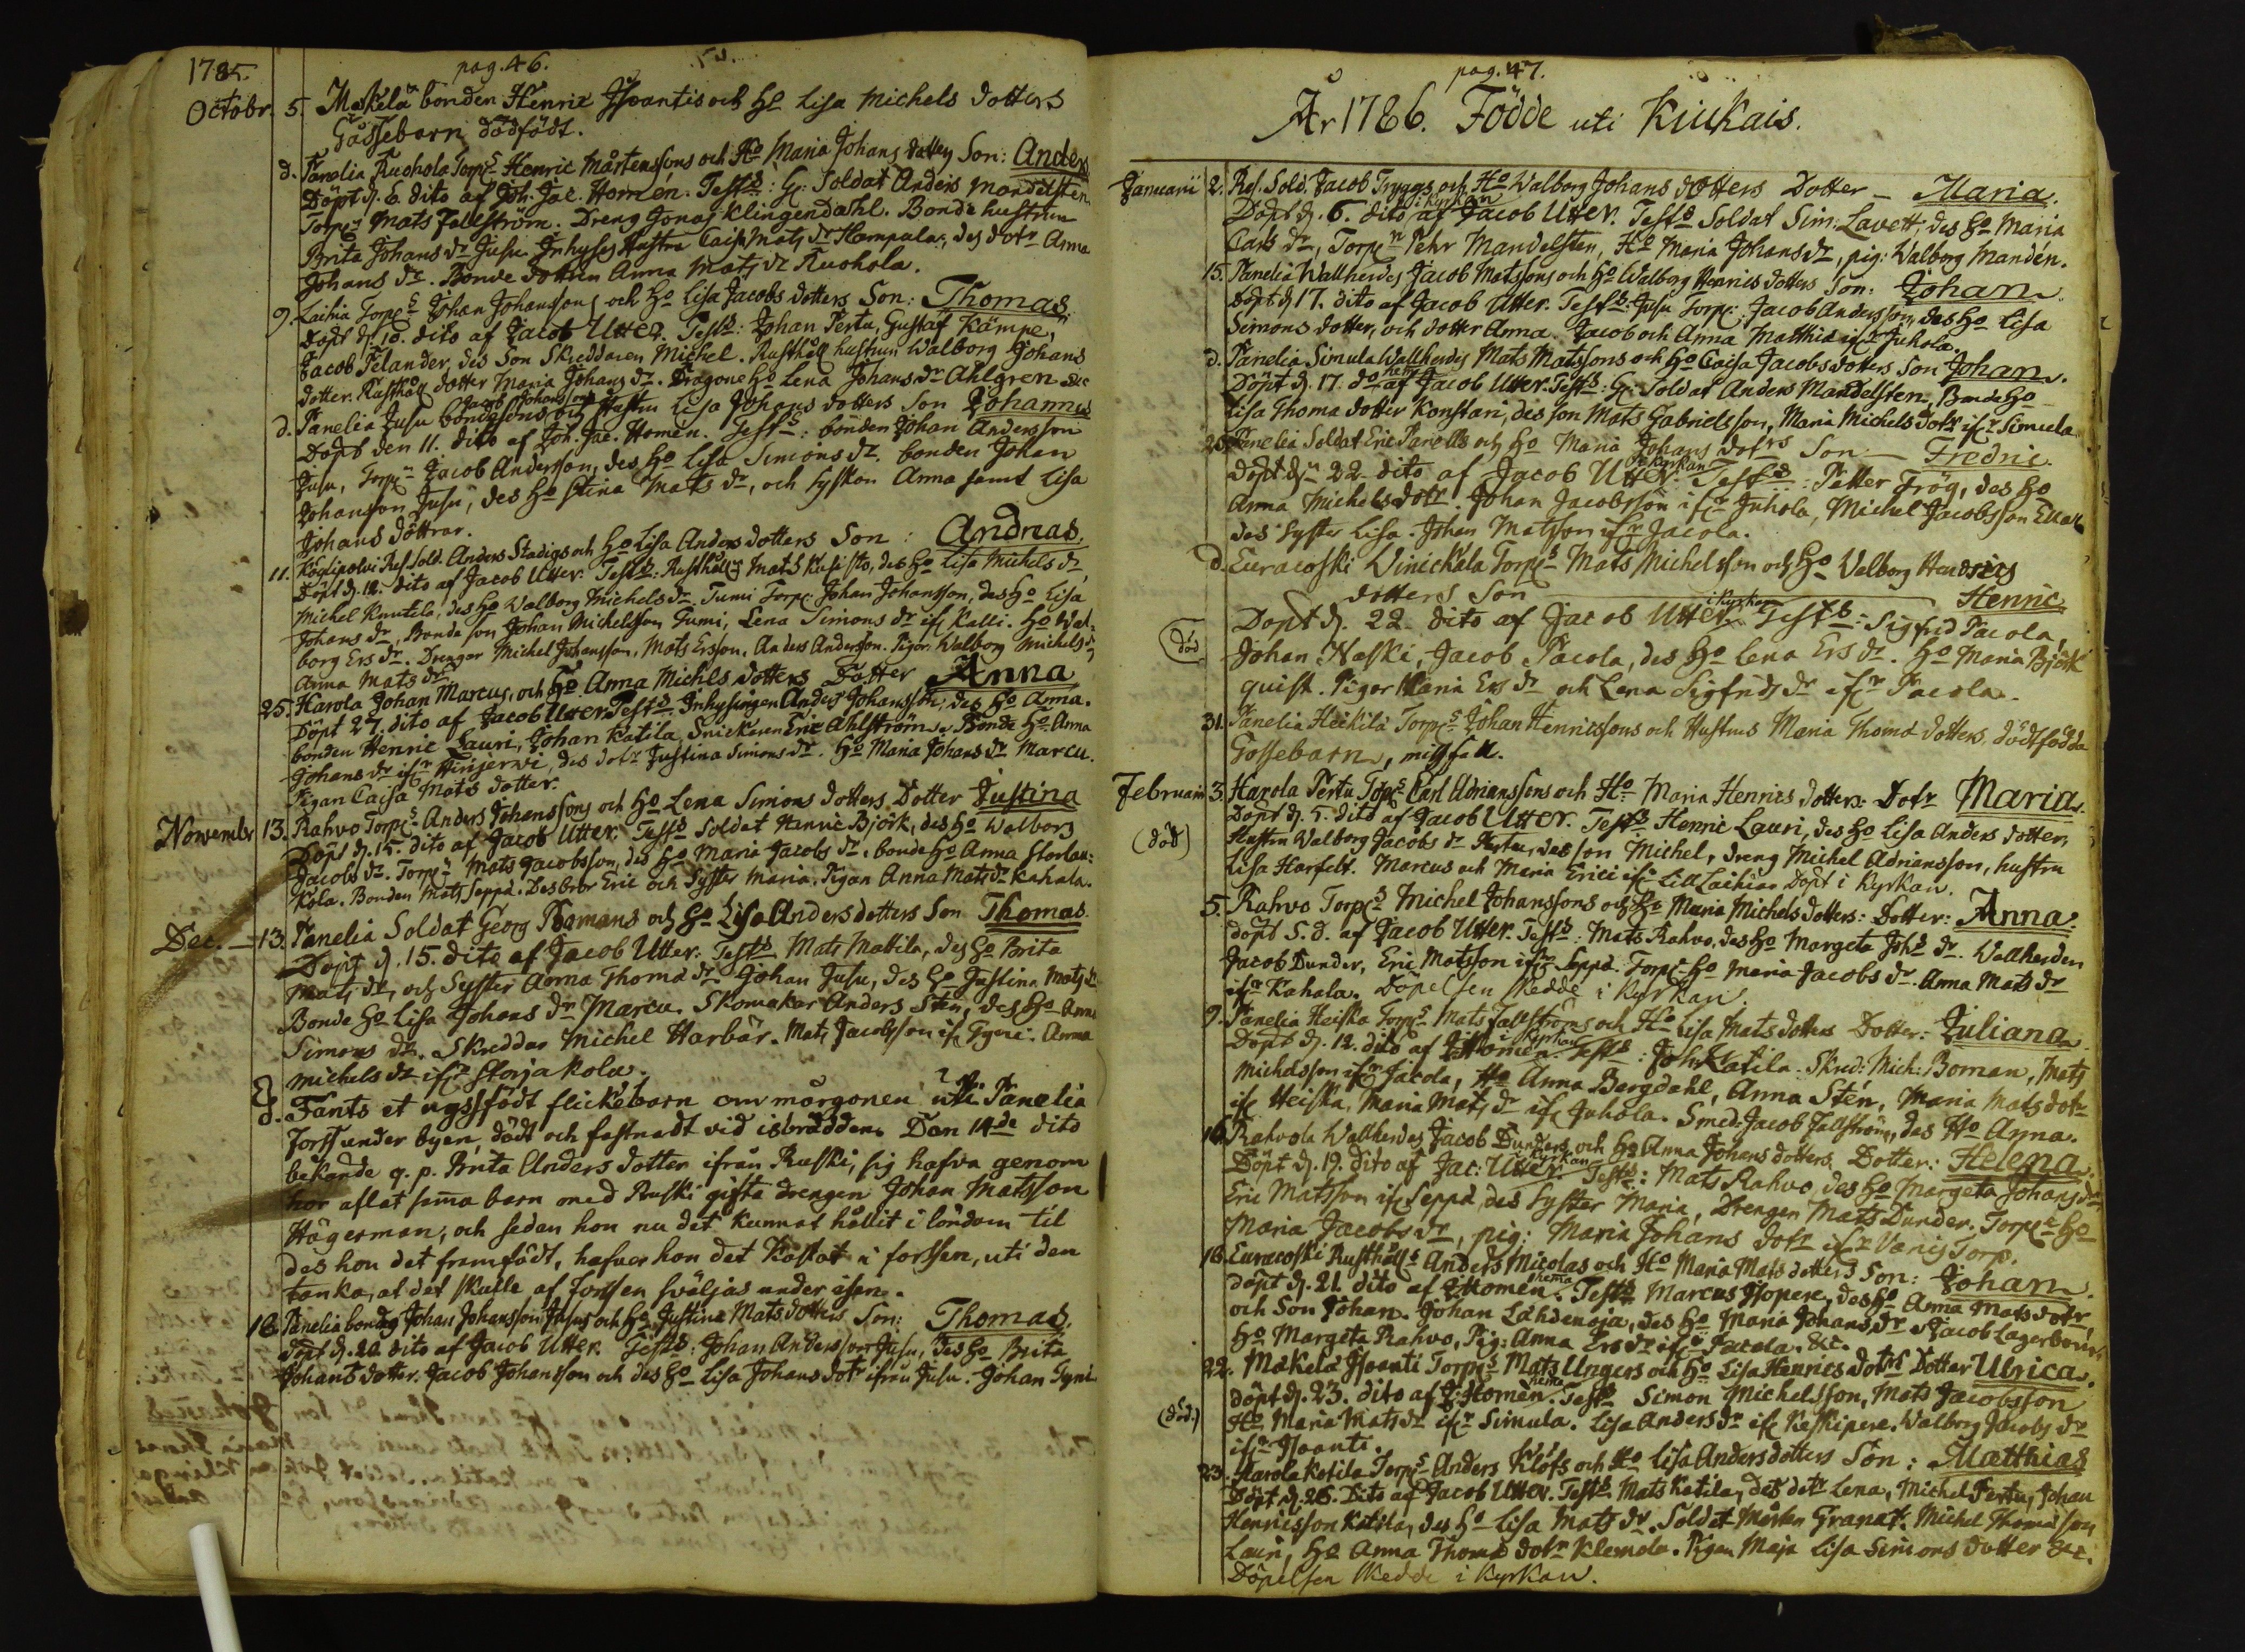 1785. pag. 46.
Octobr. 5. Mäkelä bonden Henric Isoantis och Ho Lisa Michels dotters
Gåssebarn dödfödt.
d. Panelia Ruohola Torps Henric Mårtenssons och Ho Maria Johans dotters Son: Anders
Döpt d. 6. dito af Joh. Jac. Homén. Tests: Gl. Soldat Anders Mandelsten,
Torpn Mats Fallström. Dreng Jonas Klingendahl. Bonde hustrun
Brita Johans dr Jusu. Inhyses Hustru Caisa Mats dr Hampula, des dotr Anna
Johans dr. Bonde dottren Anna Mats dr Ruohola.
9. Laihia Torps Johan Johanssons och Ho Lisa Jacobs dotters Son: Thomas.
Döpt d. 10. dito af Jacob Utter. Tests: Johan Pertu, Gustaf Kämpe,
Jacob Pelander, des Son Skreddaren Michel. Rusthåll hustrun Walborg Johans
dotter. Rusthåll dotter Maria Johans dr. Dragone Ho Lena Johans dr Ahlgren etc
Jacob Johanssons
d. Panelia Jusu bondesons och Hustru Lisa Johans dotters Son Johannes
Döpt den 11. dito af Joh. Jac. Homén. Tests: bonden Johan Andersson
Jusu, Torpn Jacob Andersson, des Ho Lisa Simons dr. bonden Johan
Johansson Jusu, des Ho Stina Mats dr, och Syskon Anna samt Lisa
Johans döttrar.
11. Köylipolvi Ref Sold. Anders Stadigs och Ho Lisa Anders dotters Son: Andreas.
Döpt d. 12. dito af Jacob Utter. Tests: Rusthåll Mats Kusisto, des Ho Lisa Michels dr
Michel Knutila, des Ho Walborg Michels dr. Tumi Torp: Johan Johansson, des Ho Lisa
Johans dr, Bonde son Johan Michelsson Tumi, Lena Simons dr ifr Kalli. Ho Wal-
borg Ers dr. Drenger Michel Johansson, Mats Ersson, Anders Andersson. Pigor Walborg Michels dr
Anna Mats dr.
25. Harola Johan Marcus, och Ho Anna Michls dotters Dotter Anna
Döpt 27. dito af Jacob Utter. Tests Inhysingen Anders Johansson, des Ho Anna.
bonden Henric Lauri, Johan Katila, Snickaren Eric Ahlström. Bonde Ho Anna
Johans dr ifr Hirvjervi, des dotr Justina Simons dr. Ho Maria Johans dr Marcu.
Pigan Caisa Mats dotter.
Novembr 13. Rahvo Torps Anders Johanssons och Ho Lena Simons dotters Dotter Justina
Döpt d. 15. dito af Jacob Utter. Tests Soldat Henric Björk, des Ho Walborg
Jacobs dr. Torpn Mats Jacobsson, des Ho Maria Jacobs dr. bonde Ho Anna Storlau:
kola. Bonden Mats Seppä. Des bror Eric och Syster Maria. Pigan Anna Mats dr Kahala.
Dec. — 13. Panelia Soldat Georg Romans och Ho Lisa Anders dotters Son Thomas.
Döpt d. 15. dito af Jacob Utter: Tests Mats Mattila, des Ho Brita
Mats dr, och Syster Anna Thoma dr. Johan Jusu, des Ho Justina Mats dr
Bonde Ho Lisa Johans dr Marcu. Skomakar Anders Sten, des Ho Anna
Simons dr. Skreddar Michel Harbär. Mats Jacobsson ifr Tyni. Anna
Michels dr ifr Storjakola.
d. Fants et nysfödt flickebarn om morgonen uti Panelia
forss under byen, dödt och fastnadt vid isbrädden. Den 14de dito
bekände q. p. Brita Anders dotter ifrån Ruski, sig hafva genom
hor aflat samma barn med Ruski gifta drengen Johan Matsson
Hägerman, och sedan hon nu det kunnat hållit i löndom til
des hon det framfödt, hafver hon det kastat i forssen, uti den
tanka, at det skulle af forssen sväljas under isen.
18. Panelia bondes Johan Johansson Jusus och Ho Justina Mats dotters Son: Thomas.
Döpt d. 20. dito af Jacob Utter. Tests: Johan Andersson Jusu, des Ho Brita
Johans dotter. Jacob Johansson och des Ho Lisa Johans dotr ifrån Jusu. Johan Tyni
pag. 47.
År 1786. Födde uti Kiukais.
Januarii 2. Ref. Sold. Jacob Tryggs och Ho Walborg Johans dotters Dotter — Maria.
Döpt d. 6. dito i kyrkan af Jacob Utter. Tests Soldat Sim: Lavett, des Ho Maria
Carls dr, Torpn Pehr Mandelsten, Ho Maria Johans dr, pig: Walborg Mandén.
15. Panelia Wallherdes Jacob Matssons och Ho Walborg Henrics dotters Son: Johan.
Döpt d. 17. dito af Jacob Utter. Tests: Jusu Torp: Jacob Andersson, des Ho Lisa
Simons dotter, och dotter Anna. Jacob och Anna Matthiæ ifr Juhola.
d. Panelia Simula Wallherdes Mats Matssons och Ho Caisa Jacobs dotters Son Johan.
Döpt d. 17. do hema af Jacob Utter. Tests: Gl. Soldat Anders Mandelsten, Bonde Ho
Lisa Thoma dotter Konstari, des son Mats Gabrielsson, Maria Michels dotr ifr Simula
20. Panelia Soldat Eric Panells och Ho Maria Johans dotrs Son — Fredric.
Döpt dn 22 dito af Jacob Utter i kyrkan. Tests: Petter Frög, des Ho
Anna Michels dotr. Johan Jacobsson ifr Juhola, Michel Jacobsson
des Syster Lisa. Johan Matsson ifr Jacola.
d. Euraåski Winickala Torps Mats Michelsson och Ho Valborg Hendrics
dotters Son — Henric
(död) Döpt d. 22 dito af Jacob Utter i kyrkan. Tests: Sigfrid Pacola,
Johan Naski, Jacob Pacola, des Ho Lena Ers dr. Ho Maria Björk
quist. Pigor Maria Ers dr och Lena Sigfrids dr ifr Pacola.
31. Panelia Heikilä Torps Johan Henricssons och Hustrus Maria Thoma dotters dödfödda
Gossebarn, missfall.
Februarii 3. Harola Pertu Torps Carl Adrianssons och Ho Maria Henrics dotters Dotr Maria.
(död) Döpt d. 5. dito af Jacob Utter. Tests Henric Lauri, des Ho Lisa Anders dotter,
Hustru Walborg Jacobs dr Pertu, des son Michel, dreng Michel Adriansson, hustru
Lisa Harfelt. Marcus och Maria Erici ifr Lill Laihia. Döpt i Kyrkan.
5. Rahvo Torps Michel Johanssons och Ho Maria Michels dotters: Dotter: Anna.
döpt 5. d. af Jacob Utter. Tests: Mats Rahvo, des Ho Margeta Johs dr. Wallherden
Jacob Dunder, Eric Matsson ifr Seppä. Torp: Ho Maria Jacobs dr. Anna Mats dr
ifr Kahala. Döpelsen skedde i Kyrkan.
9. Panelia Heiska Torps Mats Fallströms och Ho Lisa Mats dotters Dotter: Juliana.
Döpt d. 12. dito af Homén i kyrkan. Tests: Joh: Katila. Skred: Mich: Boman, Mats
Michelsson ifr Jacola, Ho Anna Bergdahl, Anna Stén, Maria Mats dotr
ifr Heiska, Maria Mats dr ifr Juhola. Smed: Jacob Fallström, des Ho Anna.
16. Rahvola Wallherdes Jacob Dunders och Ho Anna Johans dotters Dotter: Helena.
Döpt d. 19. dito af Jac: Utter i kyrkan. Tests: Mats Rahvo, des Ho Margeta Johans dr
Eric Matsson ifr Seppä, des Syster Maria, Drengen Mats Dunder. Torpe Ho
Maria Jacobs dr, pig: Maria Johans dotr ifr Vänis Torp.
16. Euraåski Rusthålls Anders Nicolas och Ho Maria Mats dotters Son: Johan.
döpt d. 21. dito af Homén hema. Tests Marcus Isopere, des Ho Anna Mats dotr,
och Son Johan. Johan Lähdenoja, des Ho Maria Johans dr. Jacob Lagerbom
Ho Margeta Rahvo, Pig: Anna Ers dr ifr Pacola. &c.
22. Mäkelä Isoanti Torps Mats Ungers och Ho Lisa Henrics dotrs Dotter Ulrica.
döpt d. 23. dito af J. Homén hema. Tests Simon Michelsson, Mats Jacobsson
(död.) Ho Maria Mats dr ifr Simula. Lisa Anders dr ifr Keskipere. Walborg Jacobs dr
ifr Isoanti.
23. Harola Katila Torps Anders Klöfs och Ho Lisa Anders dotters Son: Matthias
Döpt d. 26. Dito af Jacob Utter. Tests Mats Katila, des dotr Lena, Michel Pertu, Johan
Henricsson Katila, des Ho Lisa Mats dr. Soldat Mårten Granat. Michel Thomasson
Lauri, Ho Anna Thoma dotr Klemola. Pigan Maja Lisa Simons dotter &c.
Döpelsen skedde i kyrkan.